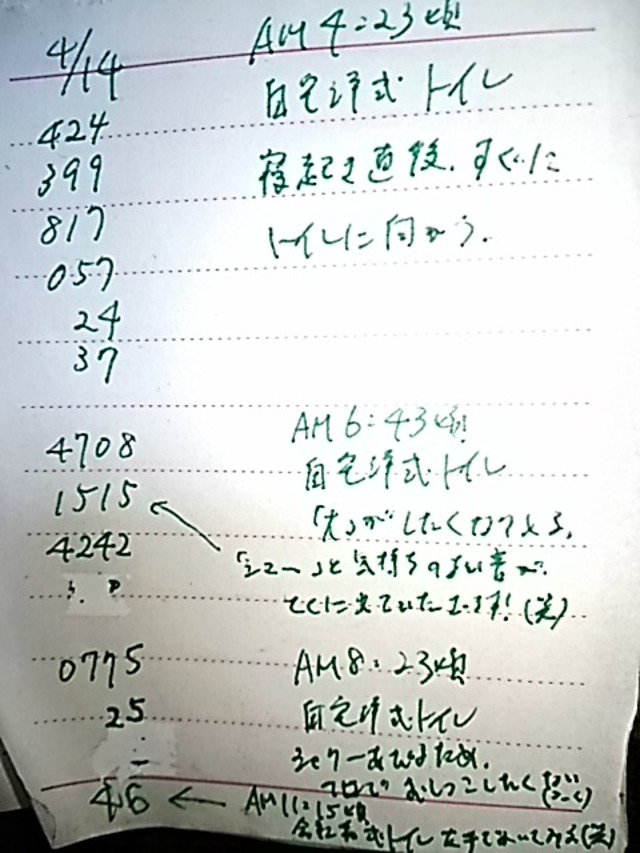 4/14 AM 4:23頃
424 自宅洋式トイレ
399 寝起き直後、すぐに
817 トイレに向かう。
057
24
37
4708 AM 6:43頃
1515 自宅洋式トイレ
4242 「大」がしたくなってくる。
「シュー」と気持ちのよい音が、
とくに出ていたエます!(笑)
0775 AM 8:23頃
25 自宅洋式トイレ
シャワーあびるため、
おしっこしたく
46 ← AM 11:15頃
会社和式トイレ (笑)